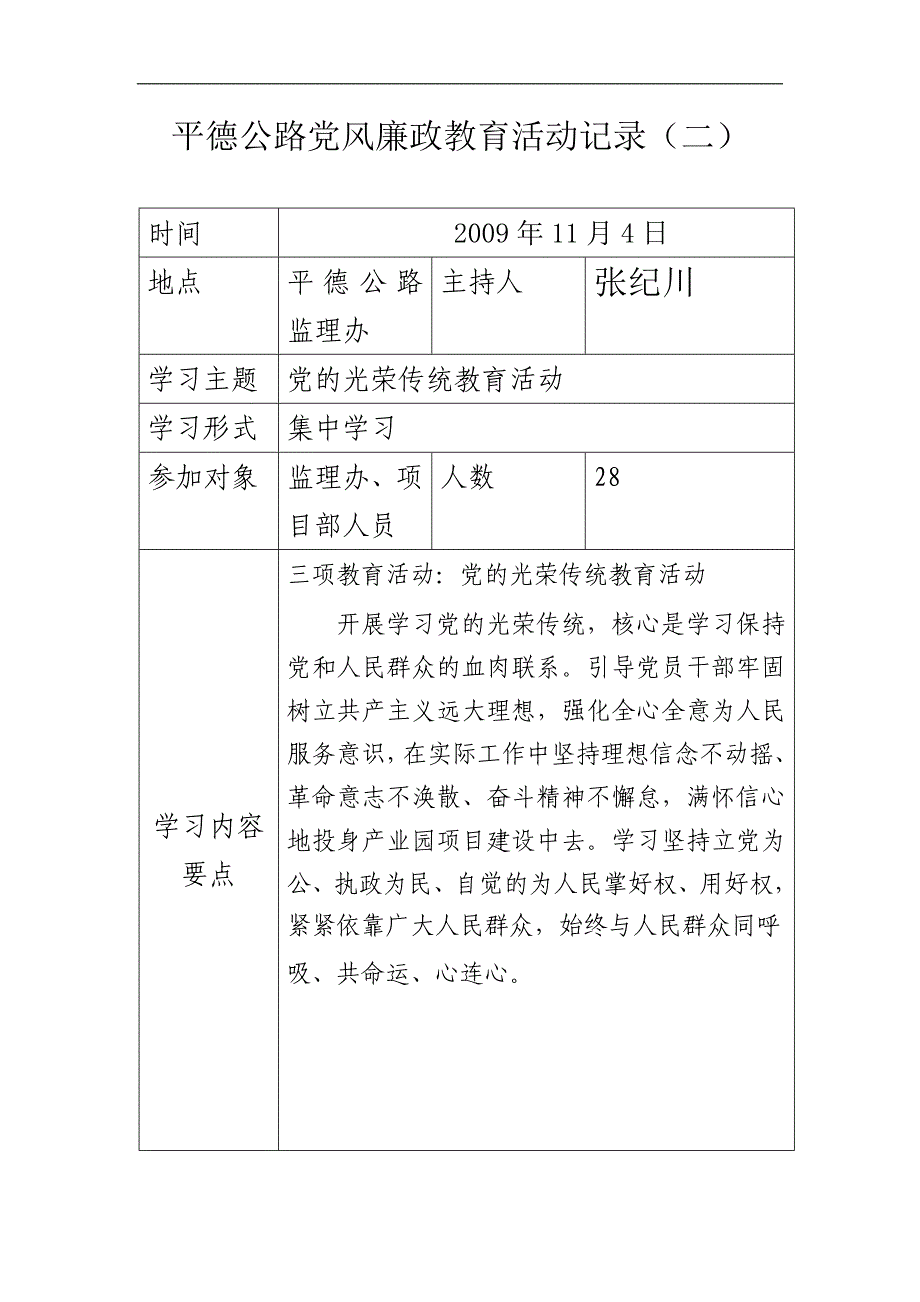 平德公路党风廉政教育活动记录（二）
时间 2009年11月4日
地点 平德公路监理办 主持人 张纪川
学习主题 党的光荣传统教育活动
学习形式 集中学习
参加对象 监理办、项目部人员 人数 28
学习内容要点
三项教育活动：党的光荣传统教育活动
开展学习党的光荣传统，核心是学习保持
党和人民群众的血肉联系。引导党员干部牢固
树立共产主义远大理想，强化全心全意为人民
服务意识，在实际工作中坚持理想信念不动摇、
革命意志不涣散、奋斗精神不懈怠，满怀信心
地投身产业园项目建设中去。学习坚持立党为
公、执政为民、自觉的为人民掌好权、用好权，
紧紧依靠广大人民群众，始终与人民群众同呼
吸、共命运、心连心。